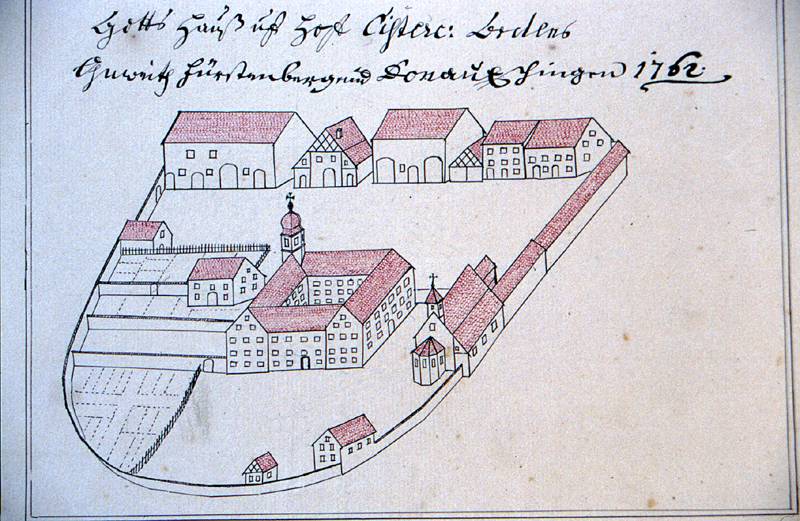 Gotts Hauß uf Hoff Cisterc: Ordles
Ohnweith Fürstenbergund Donau Eschingen 1762.